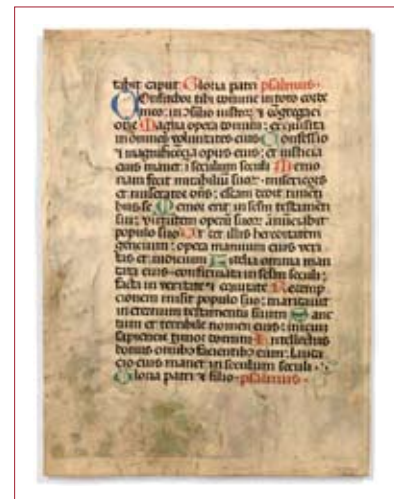 tabit caput Gloria patri psalmus
Confitebor tibi domine in toto corde
meo: in ꝯsilio iustoꝝ ⁊ cõgregaci
one Magna opera domini: exquisita
in omnes voluntates eius Confessio
⁊ magnificẽcia opus eius: et iusticia
eius manet ĩ seculum seculi Memo
riam fecit mirabiliũ suoꝝ misericors
et miserator dñs: escam dedit timenti
bus se Memor erit in seculum testamenti
sui: virtutem operũ suoꝝ ãnũciabit
populo suo Ut det illis hereditatem
gencium: opera manuum eius veri
tas et iudicium Fidelia omnia man
data eius confirmata in seculum seculi:
facta in veritate ⁊ equitate Redemp
cionem misit populo suo: mandauit
in eternum testamentũ suum Sanc
tum et terribile nomen eius: inicium
sapiencie timor domini Intellectus
bonus omnibꝰ facientibꝰ eum: lauda
cio eius manet in seculum seculi
Gloria patri ⁊ filio psalmus